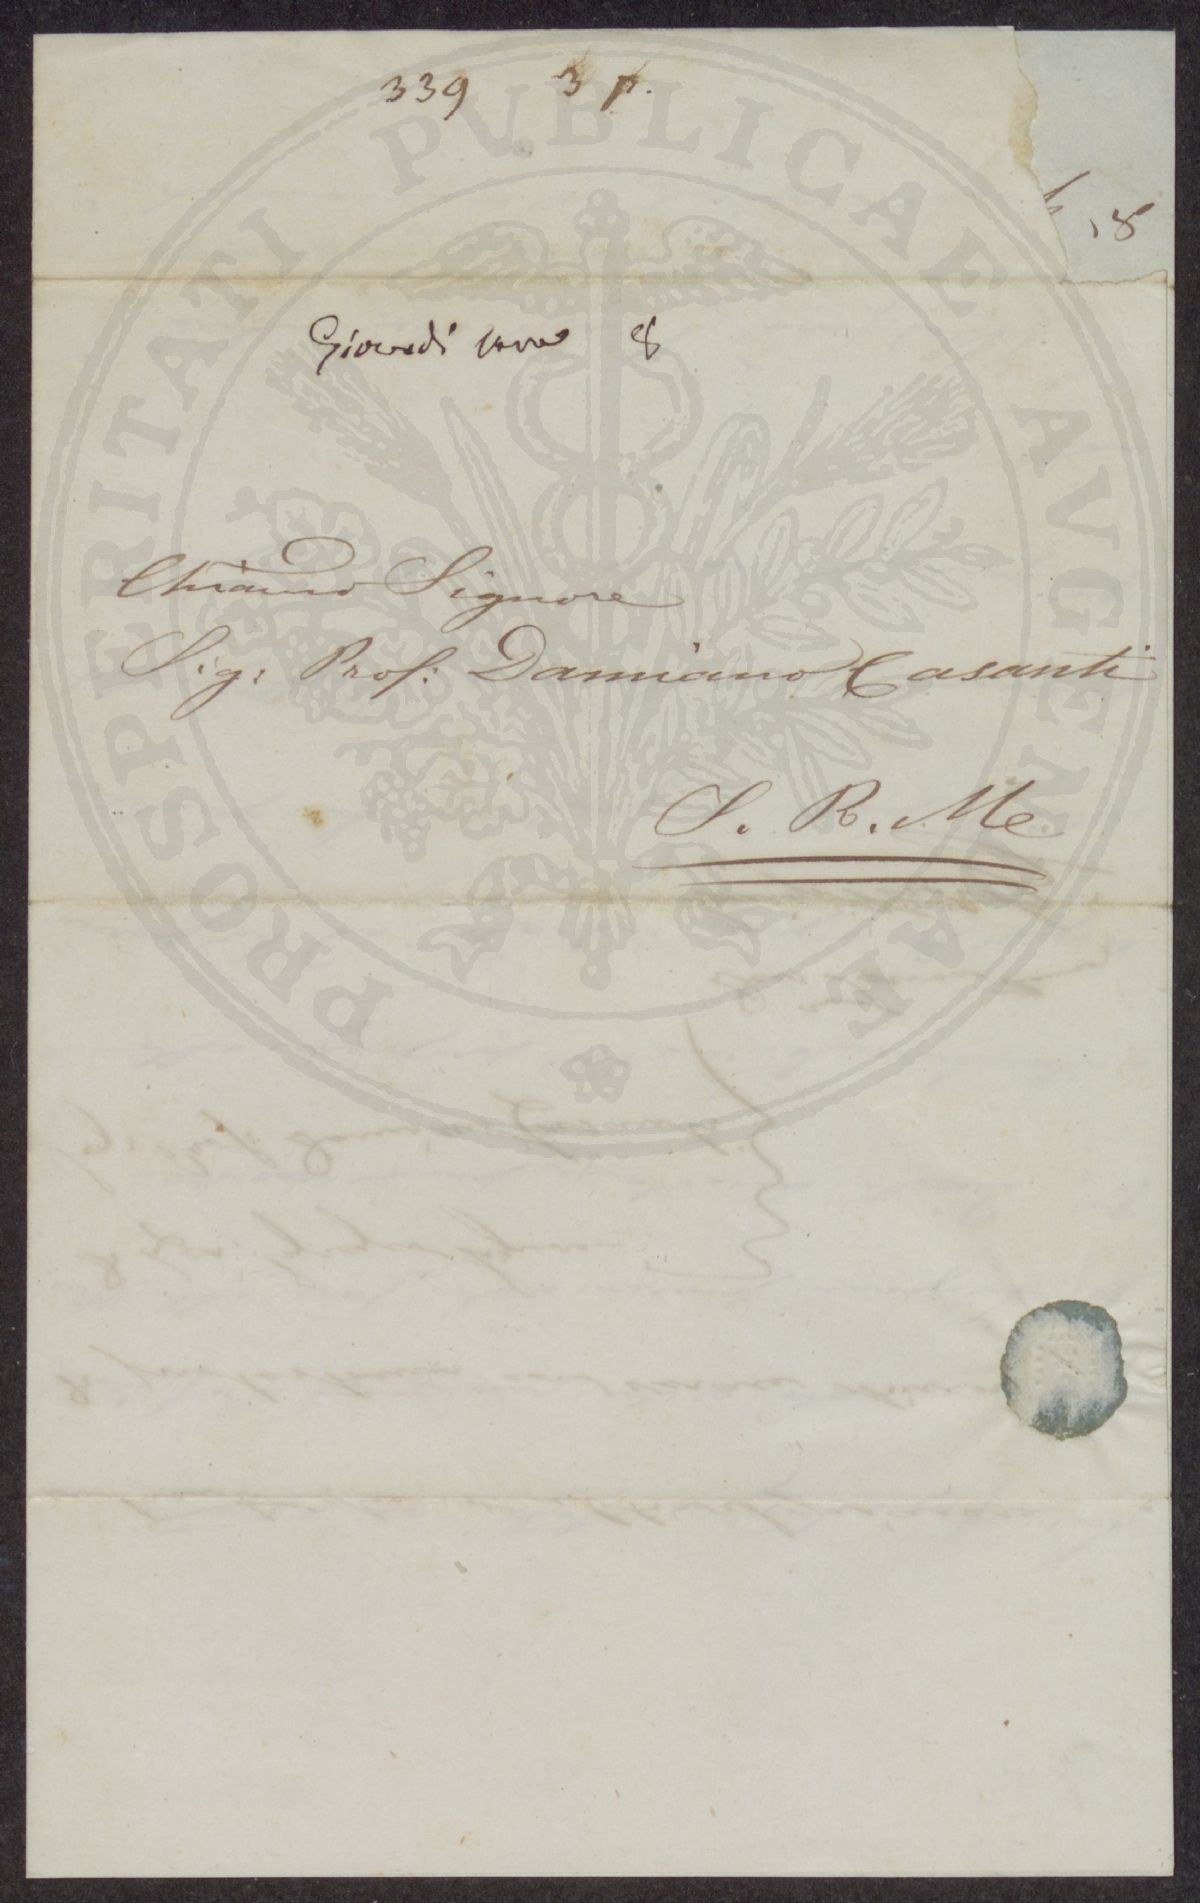 339 3 p.
18
Giovedì sera 8
Chiarmo Signore
Sig: Prof: Damiano Casanti
S. R. M.
PROSPERITATI PVBLICAE AVGENDAE